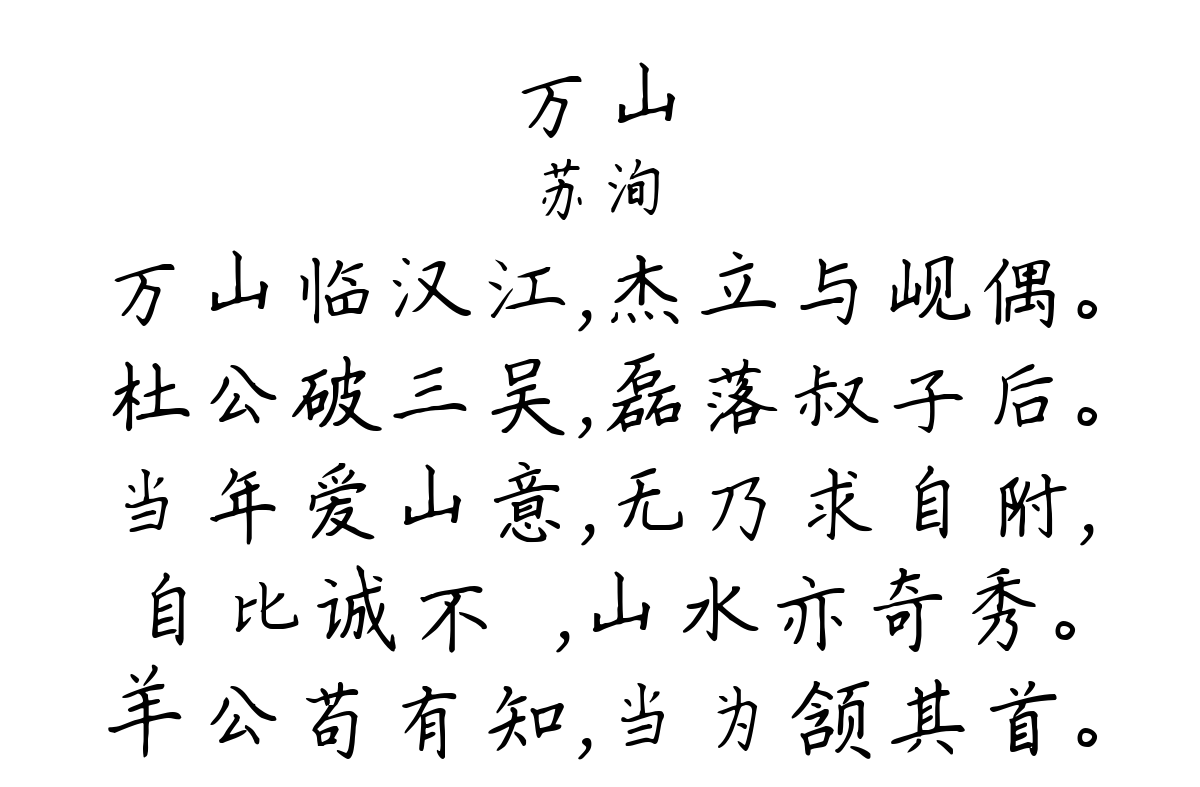 万山
苏洵
万山临汉江,杰立与岘偶。
杜公破三吴,磊落叔子后。
当年爱山意,无乃求自附,
自比诚不 ,山水亦奇秀。
羊公苟有知,当为颔其首。